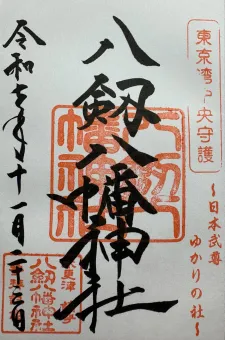 東京湾中央守護
～日本武尊
ゆかりの社～
八剱八幡神社
令和七年十一月二十七日
木更津
八剱八幡神社